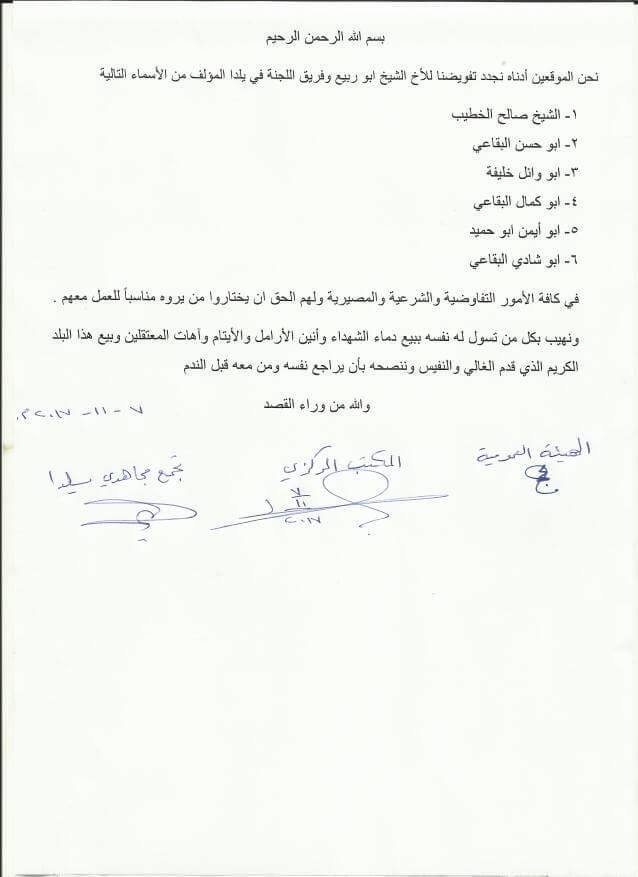 بسم الله الرحمن الرحيم
نحن الموقعين أدناه نجدد تفويضنا للأخ الشيخ ابو ربيع وفريق اللجنة في يلدا المؤلف من الأسماء التالية
١- الشيخ صالح الخطيب
٢- ابو حسن البقاعي
٣- ابو وائل خليفة
٤- ابو كمال البقاعي
٥- ابو أيمن ابو حميد
٦- ابو شادي البقاعي
في كافة الأمور التفاوضية والشرعية والمصيرية ولهم الحق ان يختاروا من يروه مناسباً للعمل معهم .
ونهيب بكل من تسول له نفسه ببيع دماء الشهداء وأنين الأرامل والأيتام وآهات المعتقلين وبيع هذا البلد
الكريم الذي قدم الغالي والنفيس وننصحه بأن يراجع نفسه ومن معه قبل الندم
والله من وراء القصد
٧ - ١١ - ٢٠١٧ م.
الهيئة العمومية
المكتب المركزي
٧
١١
٢٠١٧
تجمع مجاهدي يلدا